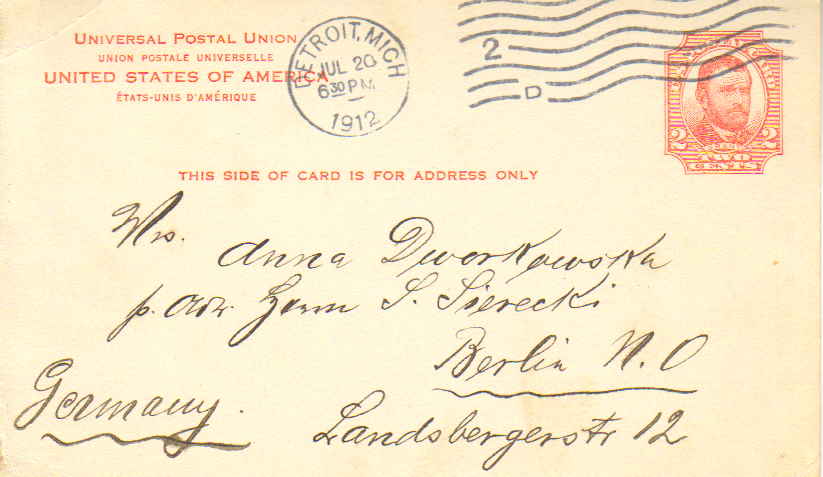 UNIVERSAL POSTAL UNION
UNION POSTALE UNIVERSELLE
UNITED STATES OF AMERICA
ÉTATS-UNIS D'AMÉRIQUE
DETROIT, MICH
JUL 20
630 PM
1912
2
D
2 2
TWO
CENTS
THIS SIDE OF CARD IS FOR ADDRESS ONLY
Mrs.
Anna Dworkowska
p. Adr. Herrn S. Sierecki
Berlin N.O
Germany.
Landsbergerstr 12